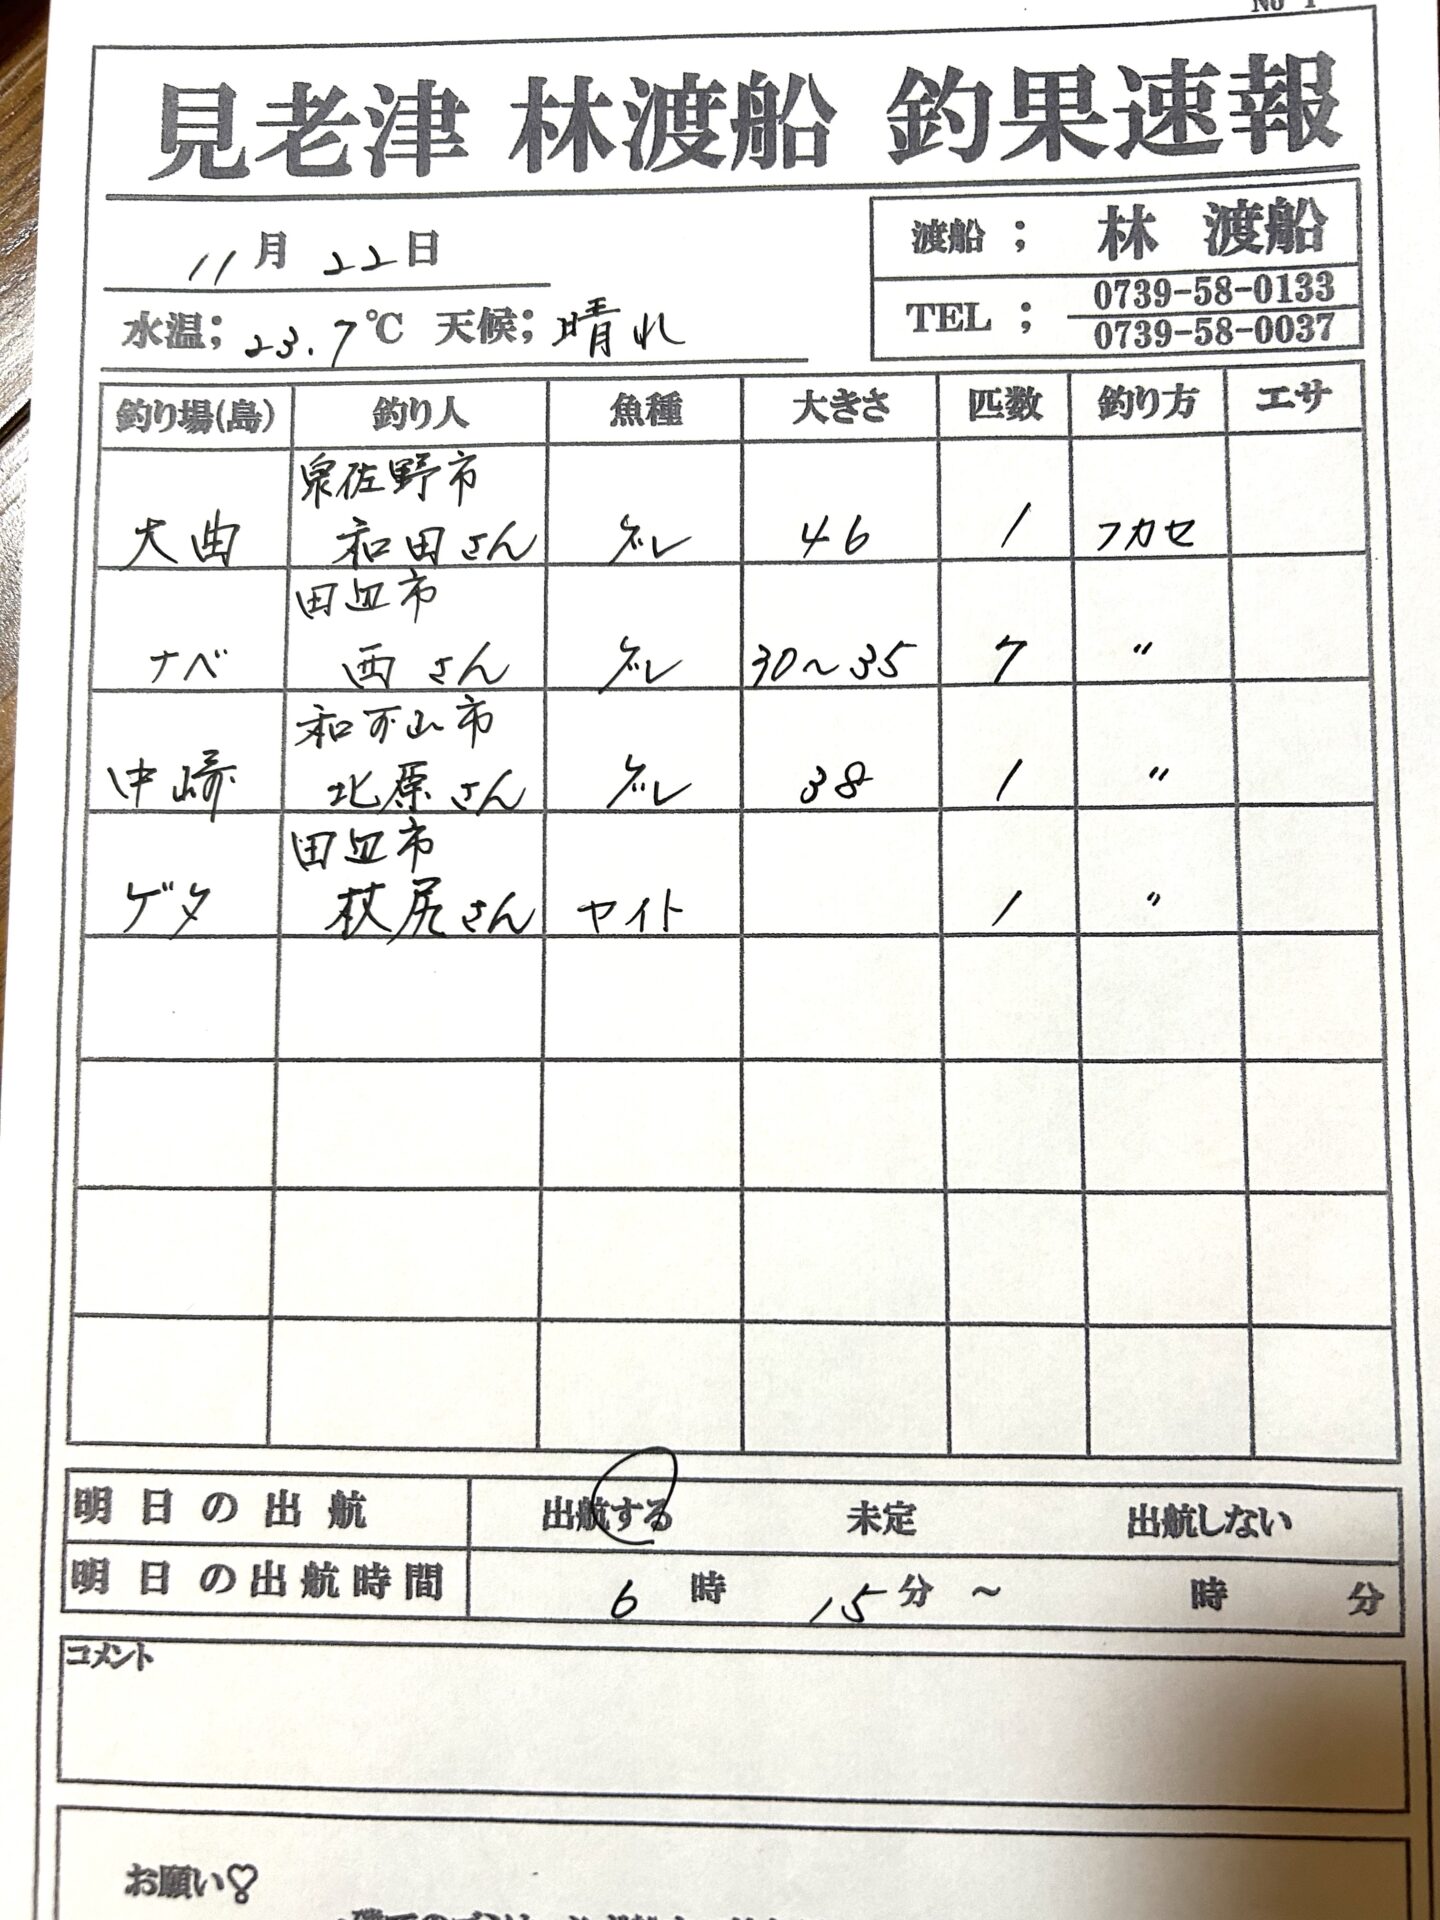 No 1
見老津 林渡船 釣果速報
11月 22日
渡船 ; 林 渡船
水温; 23.7℃ 天候; 晴れ
TEL ; 0739-58-0133
0739-58-0037
釣り場(島) 釣り人 魚種 大きさ 匹数 釣り方 エサ
泉佐野市
大曲 和田さん グレ 46 1 フカセ
田辺市
ナベ 西さん グレ 30~35 7 〃
和歌山市
中崎 北原さん グレ 38 1 〃
田辺市
ゲタ 杖尻さん ヤイト 1 〃
明日の出航 出航する 未定 出航しない
明日の出航時間 6時 15分 ~ 時 分
コメント
お願い♡